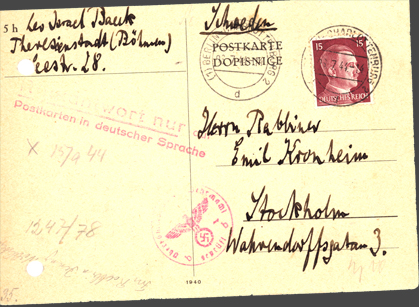 5 h Leo Israel Baeck
Theresienstadt (Böhmen)
Seestr. 28.
Schweden
POSTKARTE
DOPISNICE
15 15
DEUTSCHES REICH
Antwort nur
Postkarten in deutscher Sprache
X 15/a 44
1247/78
Herrn Rabbiner
Emil Kronheim
Stockholm
Wahrendorffsgatan 3.
1940
35.